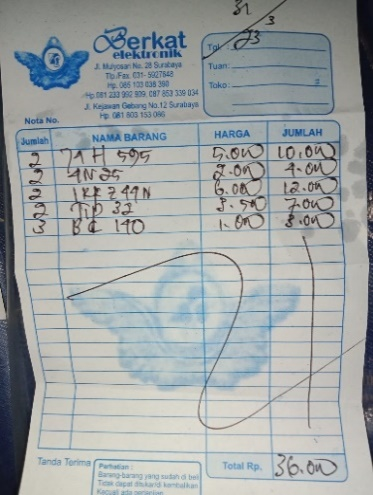 31/3
23
Berkat
elektronik
Jl. Mulyosari No. 28 Surabaya
Tlp./Fax. 031- 5927848
Hp. 085 103 038 388
Hp. 081 233 992 939, 087 853 339 034
Jl. Kejawan Gebang No.12 Surabaya
Hp. 081 803 153 066
Tgl :
Tuan :
Toko :
Nota No.
Jumlah NAMA BARANG HARGA JUMLAH
2 74 H 595 5.000 10.000
2 4N25 2.000 4.000
2 IRFZ44N 6.000 12.000
2 TIP 32 3.500 7.000
3 BC 140 1.000 3.000
Tanda Terima
Perhatian :
Barang-barang yang sudah di beli
Tidak dapat ditukar/di kembalikan
Kecuali ada perjanjian
Total Rp. 36.000